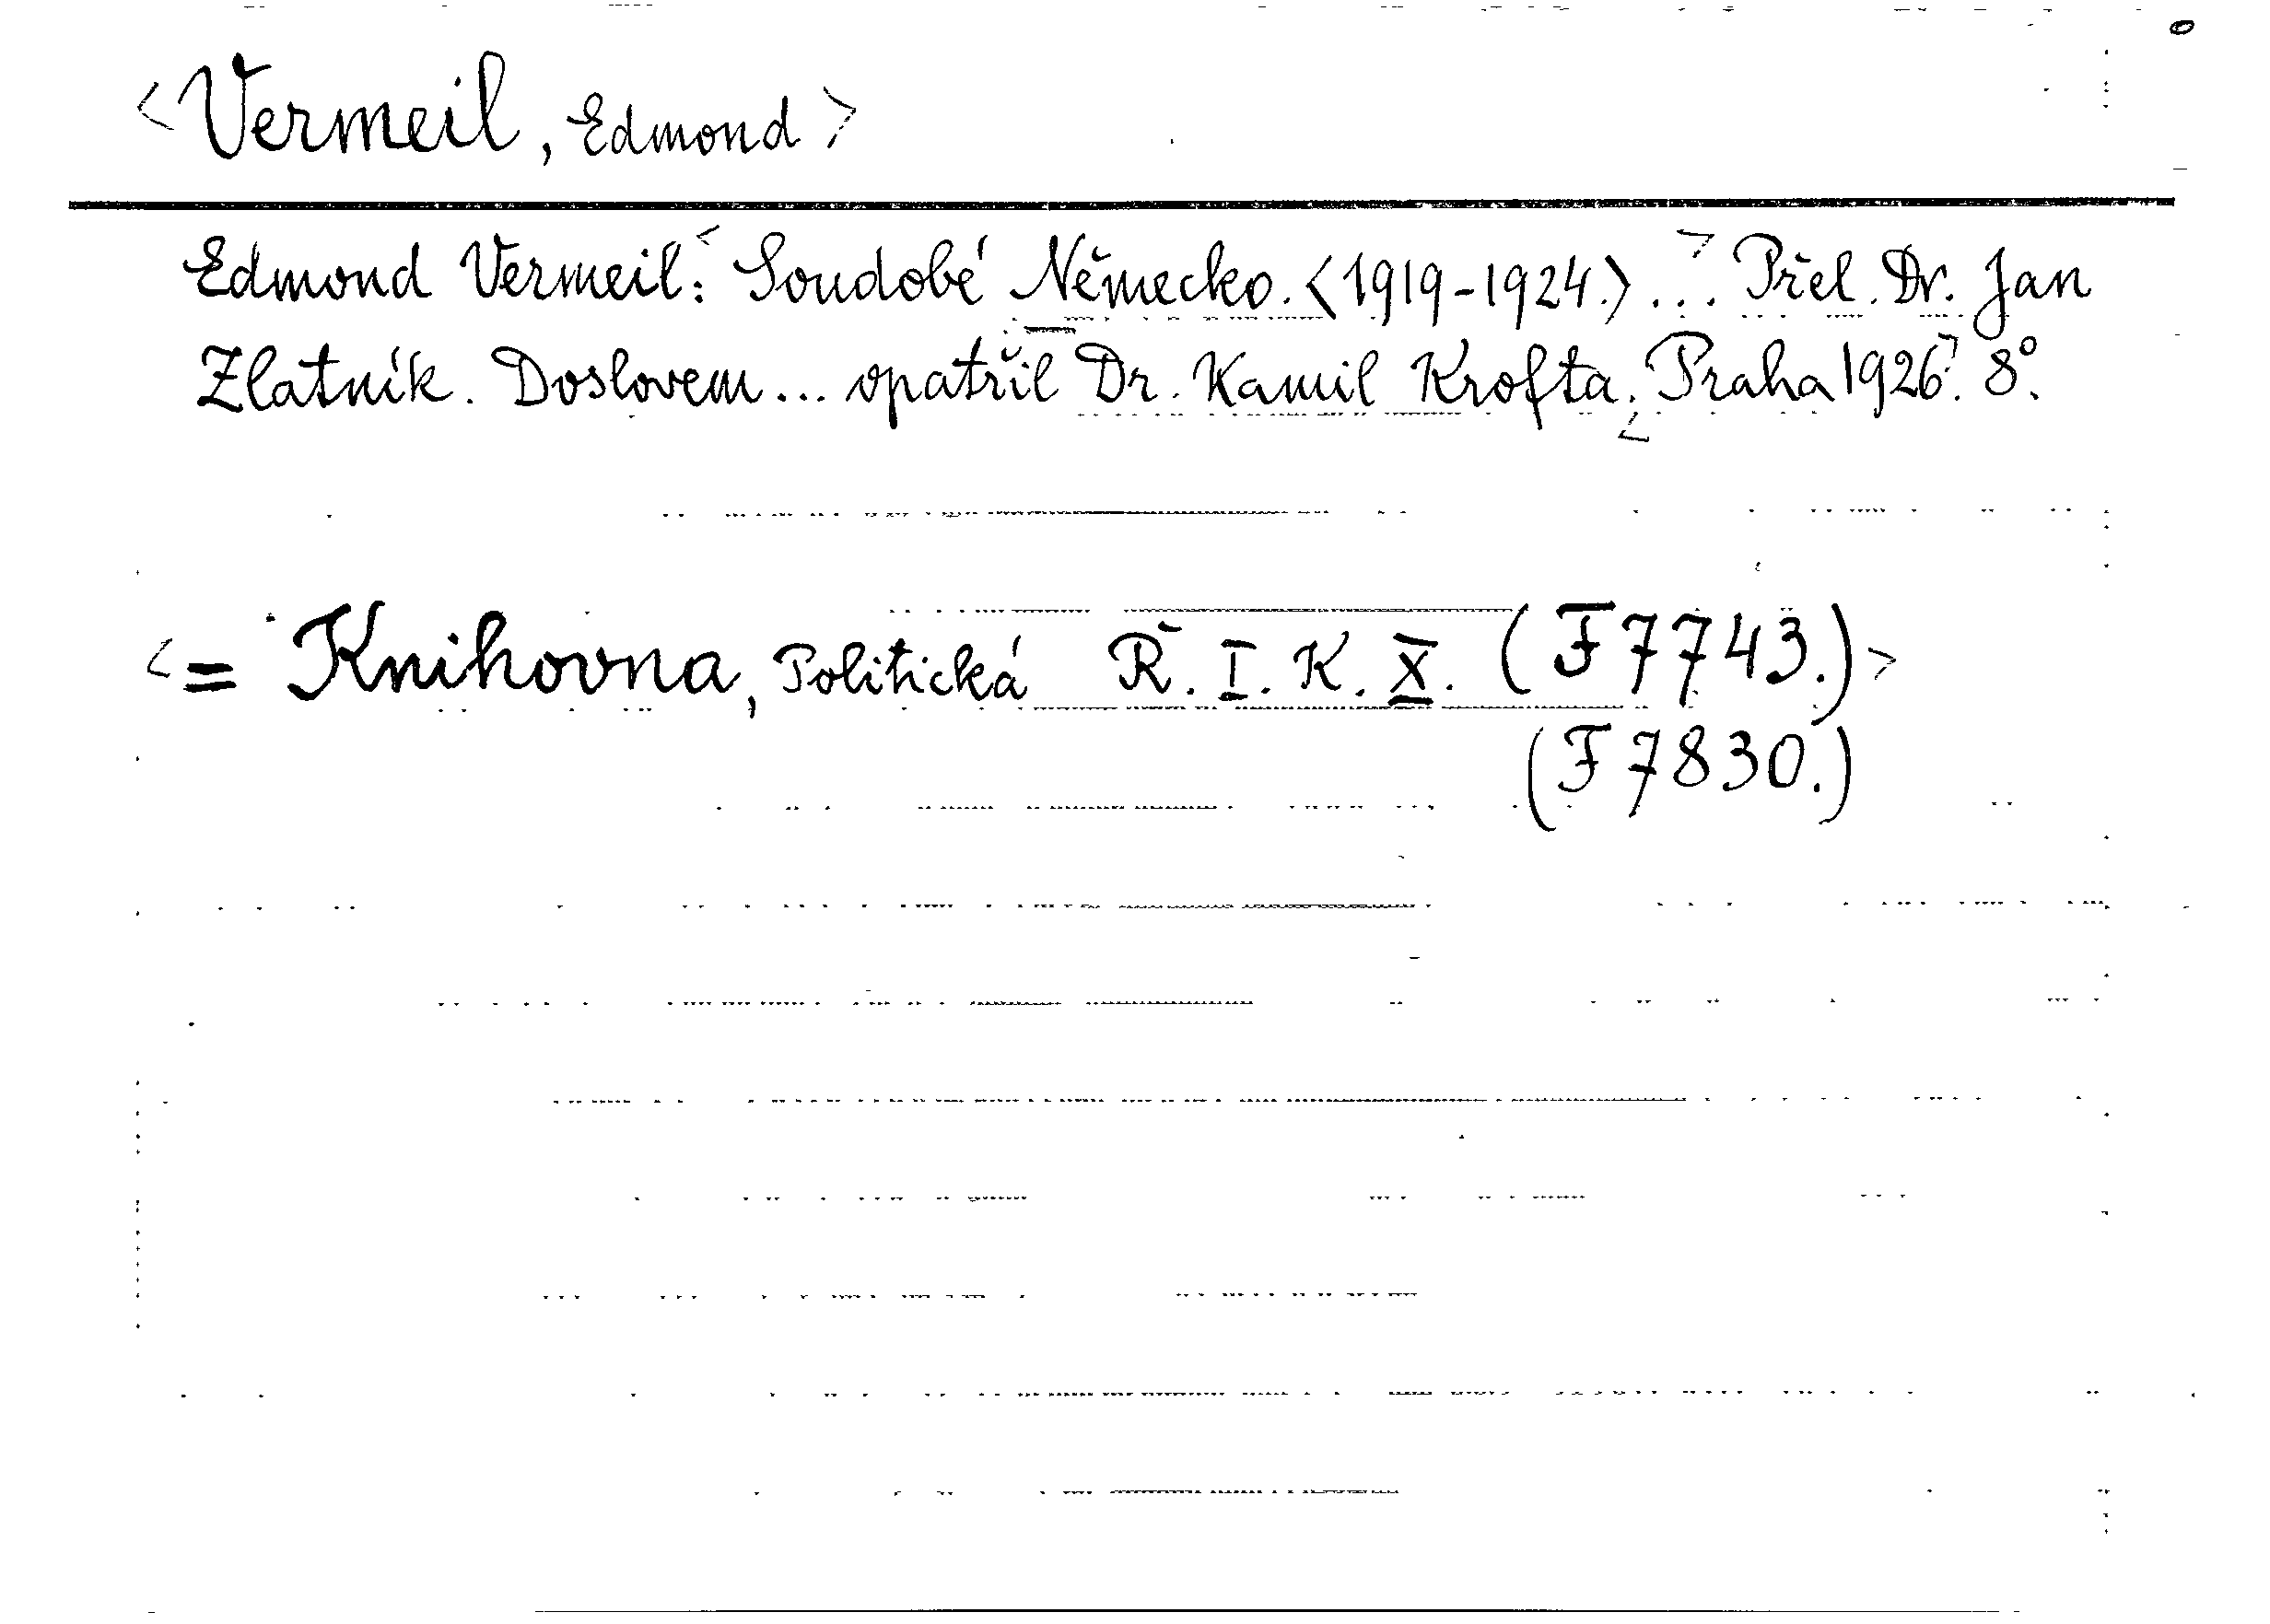 <Vermeil, Edmond>
Edmond Vermeil: <Soudobé Německo. <1919-1924.> ...> Přel. Dr. Jan
Zlatník. Doslovem... opatřil Dr. Kamil Krofta. <Praha 1926>. 8°.
<= Knihovna, Politická Ř. I. K. X. (F 7743.)>
(F 7830.)